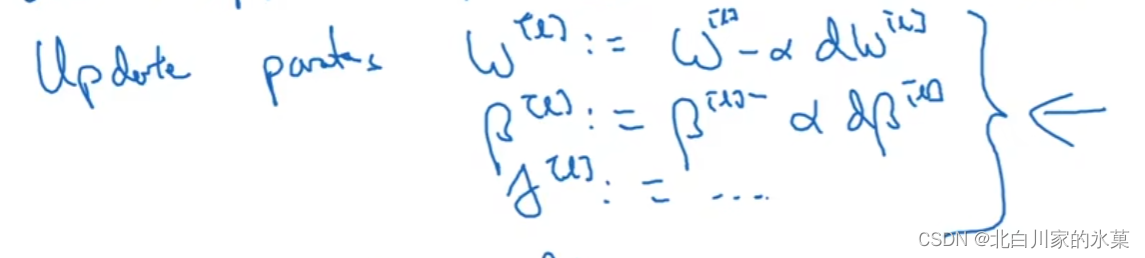 Update parates W^[l] := W^[l] - α dW^[l]
β^[l] := β^[l] - α dβ^[l]
γ^[l] := ....
CSDN @北白川家的氷菓